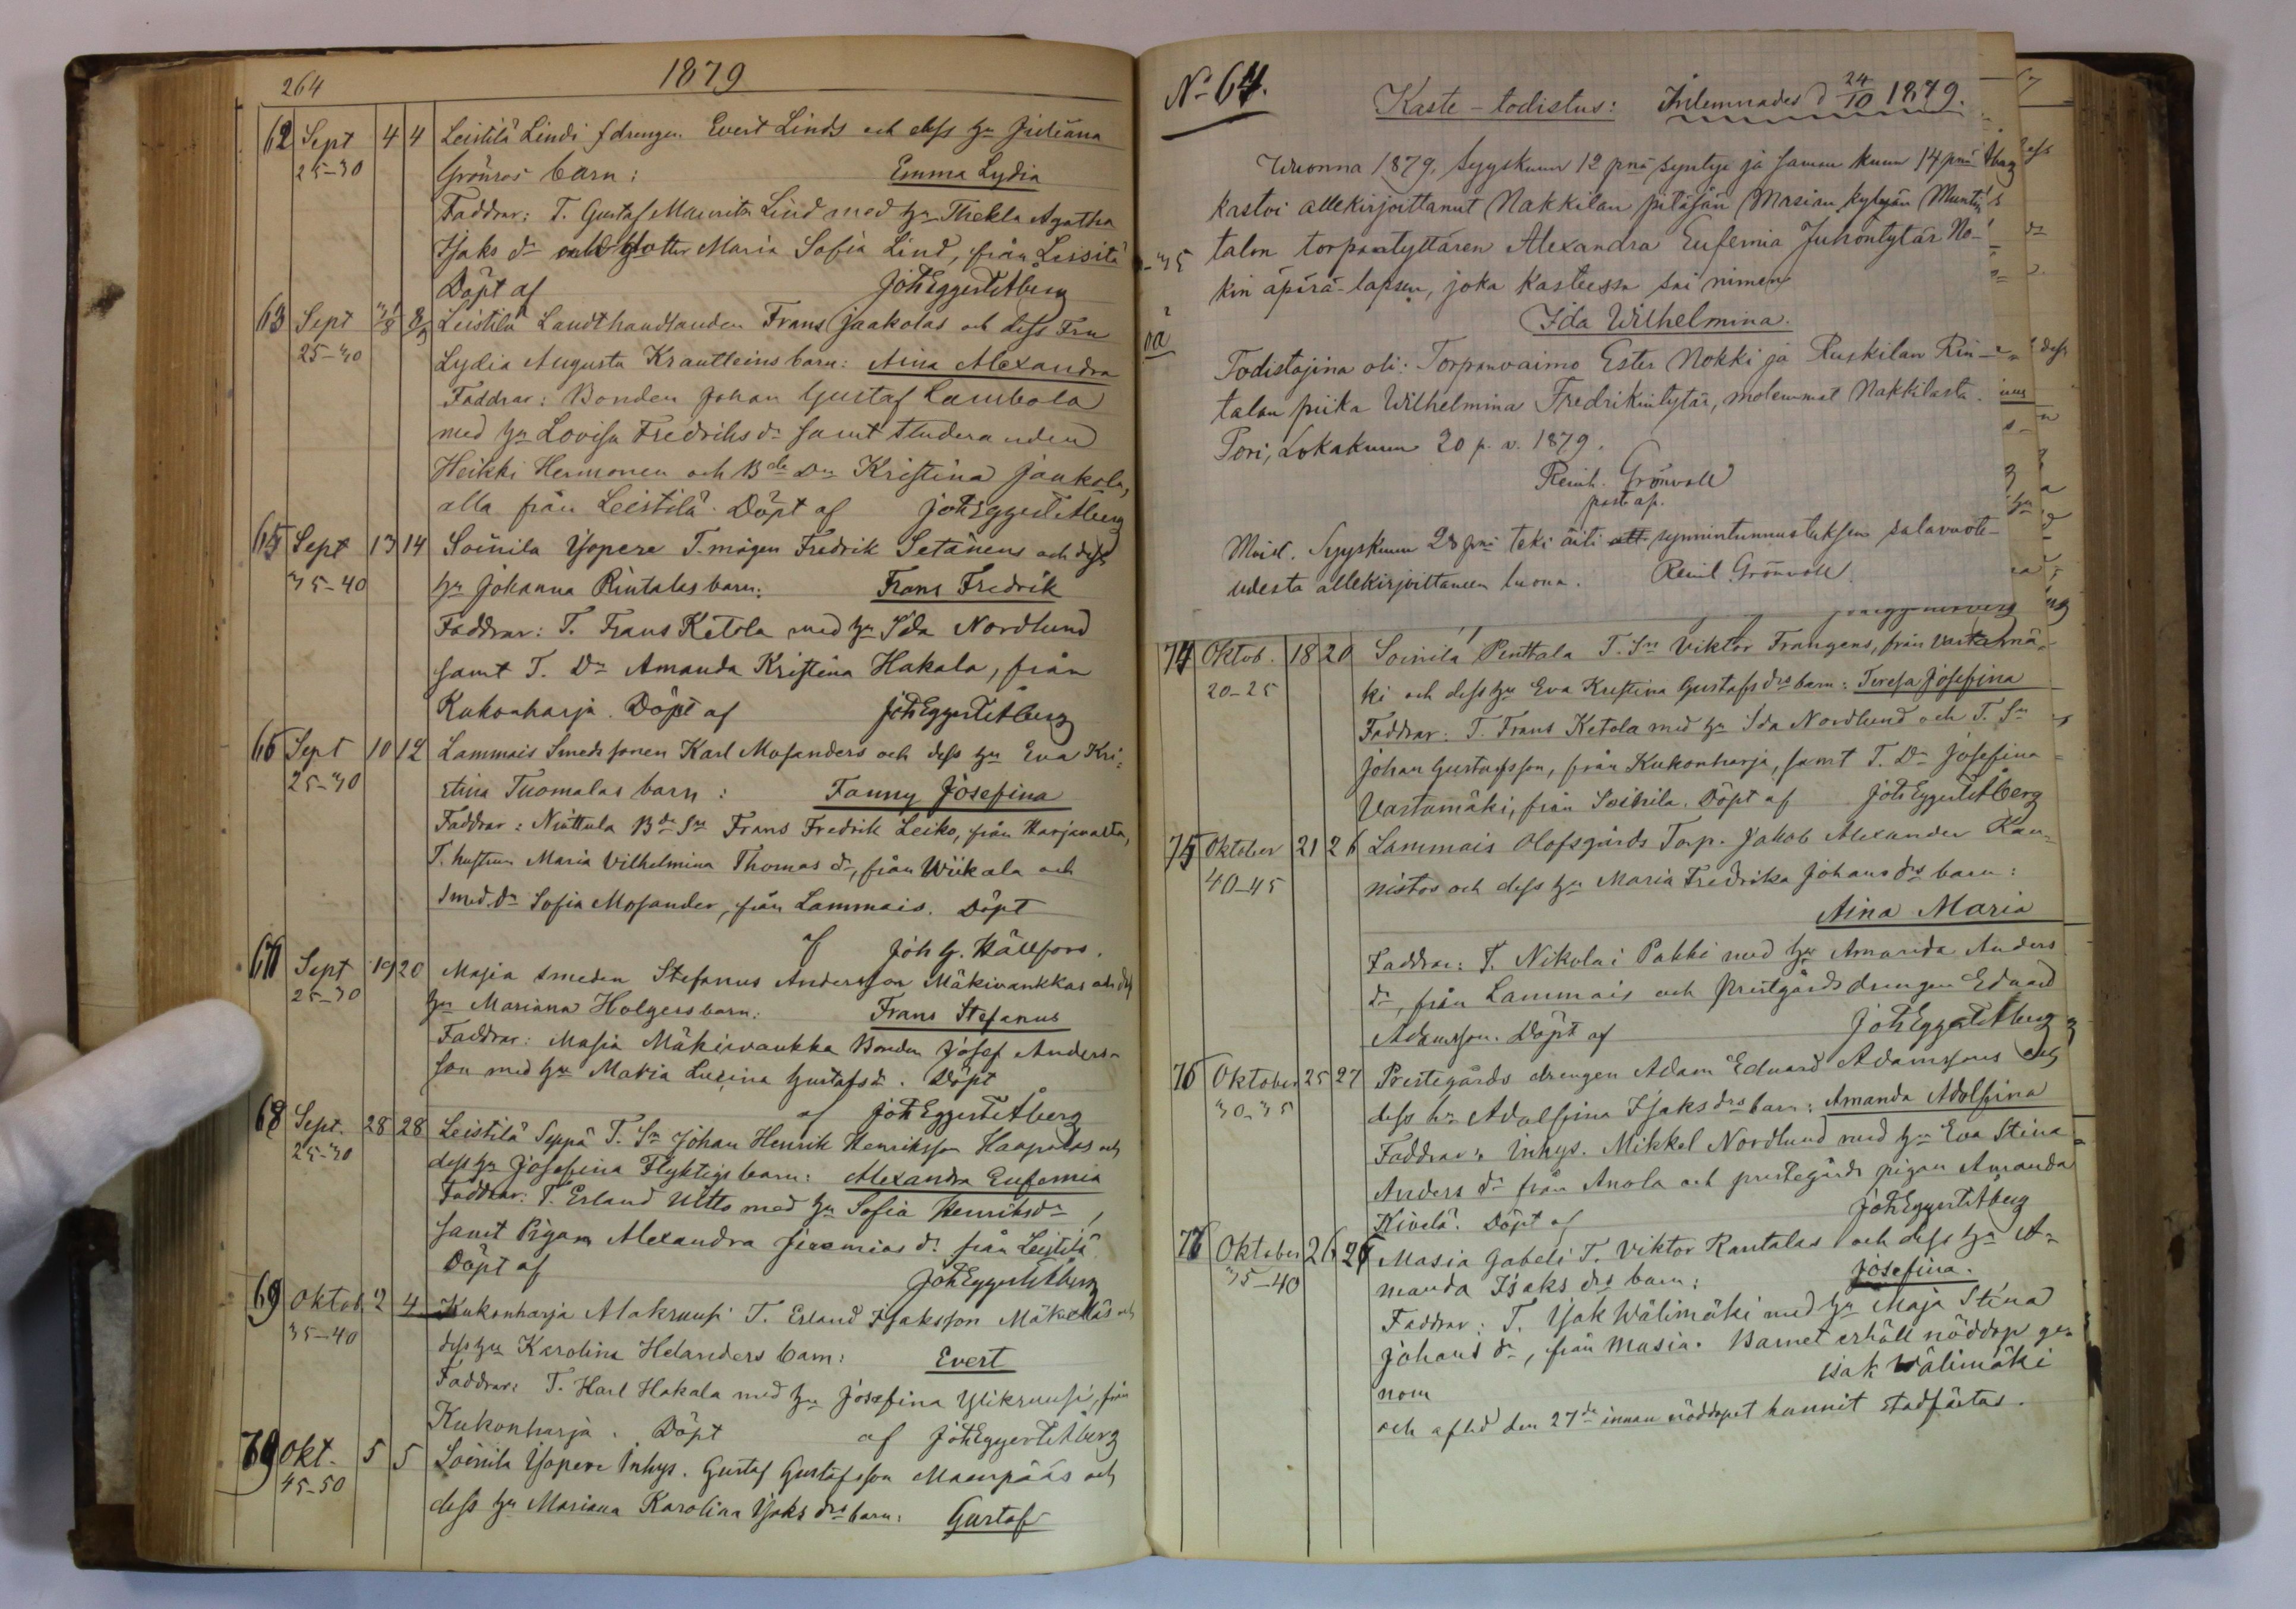 264
1879
62 Sept 4 4 Leistilä Lindi fdrengen Evert Linds och dess hu Juliana
25-30 Grönros barn: Emma Lydia
Faddrar: T. Gustaf Mauritz Lind med hu Thekla Agatha
Isaks dr Maria Sofia Lind, från Leistilä
Döpt af Joh Eggert Åberg
63 Sept 31/8 8/9 Leistilä Landthandlanden Frans Jaakolas och dess Fru
25-30 Lydia Augusta Krautleins barn: Aina Alexandra
Faddrar: Bonden Johan Gustaf Lambola
med hu Lovisa Fredriks dr samt studeranden
Heikki Hermonen och Bde Dr Kristina Jaakola,
alla från Leistilä. Döpt af Joh Eggert Åberg
65 Sept 13 14 Soinila Yopere T. mågen Fredrik Setänens och dess
35-40 hu Johanna Rintalas barn: Frans Fredrik
Faddrar: T. Frans Ketola med hu Ida Nordlund
samt T. Dr Amanda Kristina Hakala, från
Kukonharja. Döpt af Joh Eggert Åberg
66 Sept 10 12 Lammais Smeds sonen Karl Mosanders och dess hu Eva Kri-
25-30 stina Tuomalas barn: Fanny Josefina
Faddrar: Niuttula Bde Sn Frans Fredrik Leiko, från Harjavalta,
T. hustrun Maria Vilhelmina Thomas dr, från Wiikala och
Smed. dr Sofia Mosander, från Lammais. Döpt
af Joh G. Hällfors.
67 Sept 19 20 Masia smeden Stefanus Andersson Mäkivankkas och dess
25-30 hu Mariana Holgers barn: Frans Stefanus
Faddrar: Masia Mäkivankka Bonden Josef Anders-
son med hu Maria Lucina Gustafs dr. Döpt
af Joh Eggert Åberg
68 Sept. 28 28 Leistilä Seppä T. Sn Johan Henrik Henriksson Haapalas och
25-30 dess hu Josefina Flyktigs barn: Alexandra Eufemia
Faddrar: T. Erland Utto med hu Sofia Henriksdr,
samt Pigan Alexandra Jeremias dr från Leistilä
Döpt af Joh Eggert Åberg
69 Oktob. 2 4 Kukonharja Alakruusi T. Erland Isaksson Mäkeläs och
35-40 dess hu Karolina Helanders barn: Evert
Faddrar: T. Karl Hakala med hu Josefina Ylikruusi, från
Kukonharja. Döpt af Joh Eggert Åberg
70 Okt. 5 5 Soinila Yopere Inhys. Gustaf Gustafsson Maenpääs och
45-50 dess hu Mariana Karolina Isaks drs barn: Gustaf
No 64.
Kaste-todistus: Inlemnades d 24/10 1879.
Wuonna 1879, Syyskuun 12 pnä syntyi ja saman kuun 14 pnä
kastoi allekirjoittanut Nakkilan pitäjän Masian kylän Muntin
talon torpantyttären Alexandra Eufemia Juhontytär No-
kin äpärä-lapsen, joka kasteessa sai nimen
Ida Wilhelmina.
Todistajina oli: Torpanvaimo Ester Nokki ja Ruskilan Rin-
talan piika Wilhelmina Fredrikintytär, molemmat Nakkilasta.
Pori, Lokakuun 20 p. v. 1879.
Reinh. Grönvall
past. ap.
Muist. Syyskuun 28 pnä teki äiti synnintunnustuksen salavuote-
udesta allekirjoittaneen luona. Reinh. Grönvall
74 Oktob. 18 20 Soinila Penttala T. Sn Viktor Frangens, från Vastamä-
20-25 ki och dess hu Eva Kristina Gustafs drs barn: Teresa Josefina
Faddrar: T. Frans Ketola med hu Ida Nordlund och T. Sn
Johan Gustafsson, från Kukonharja, samt T. Dr Josefina
Vastamäki, från Soinila. Döpt af Joh Eggert Åberg
75 Oktober 21 26 Lammais Olofsgårds Torp. Jakob Alexander Kau-
40-45 nistos och dess hu Maria Fredrika Johans drs barn:
Aina Maria
Faddrar: T. Nikolai Pakki med hu Amanda Anders
dr, från Lammais och Prestgårds drengen Eduard
Adamsson. Döpt af Joh Eggert Åberg
76 Oktober 25 27 Prestegårds drengen Adam Eduard Adamssons och
30-35 dess hu Adolfina Isaks drs barn: Amanda Adolfina
Faddrar: Inhys. Mikkel Nordlund med hu Eva Stina
Anders dr från Anola och prestegårds pigan Amanda
Kivelä. Döpt af Joh Eggert Åberg
77 Oktober 26 26 Masia Gabeli T. Viktor Rautalas och dess hu A-
35-40 manda Isaks drs barn: Josefina.
Faddrar: T. Isak Wälimäki med hu Maja Stina
Johans dr, från Masia. Barnet erhöll nöddop ge-
nom Isak Wälimäki
och afled den 27de innan nöddopet hunnit stadfästas.